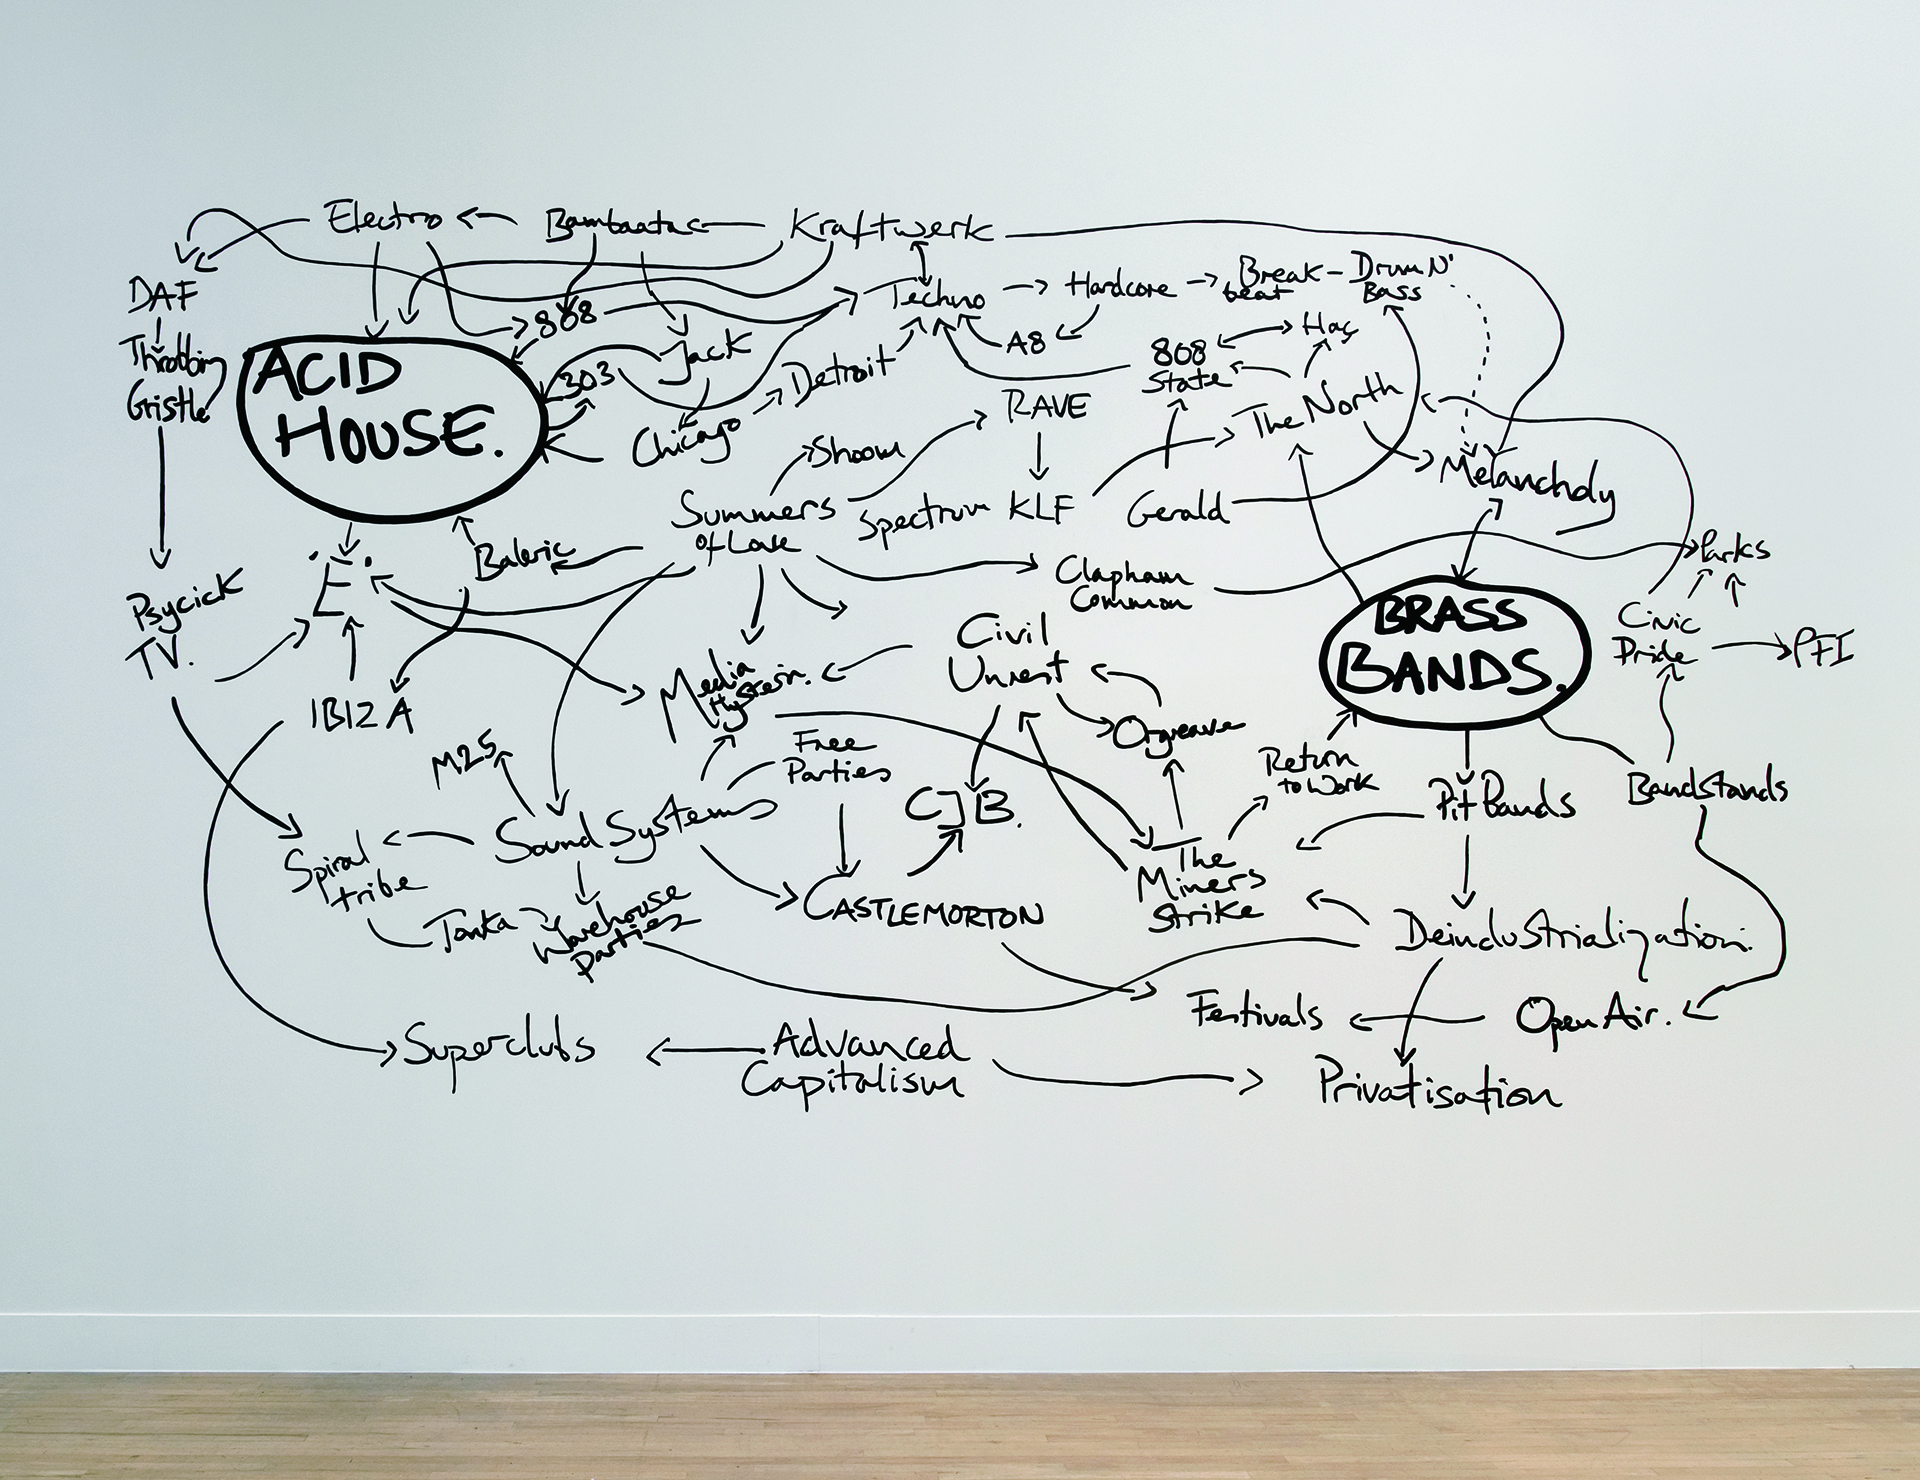 Electro
Bambaata
Kraftwerk
DAF
Throbbing
Gristle
ACID
HOUSE.
808
303
Jack
Chicago
Detroit
Techno
Hardcore
Break
beat
Drum N'
Bass
A8
808
State
Haç
The North
RAVE
Shoom
Summers
of Love
Spectrum
KLF
Gerald
Melancholy
Baleric
'E'.
Clapham
Common
Parks
Psycick
TV.
IBIZA
Media
Hysteria.
Civil
Unrest
BRASS
BANDS.
Civic
Pride
PFI
Orgreave
Return
to Work
Pit Bands
Bandstands
M25
Free
Parties
CJB.
Sound Systems
Spiral
tribe
Tonka
Warehouse
Parties
CASTLEMORTON
The
Miners
Strike
Deindustrialization.
Festivals
Open Air.
Superclubs
Advanced
Capitalism
Privatisation